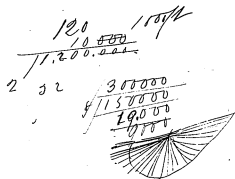 120 1000ft
10 000
1.200.000
2 32 300000
150000
19.000
9000